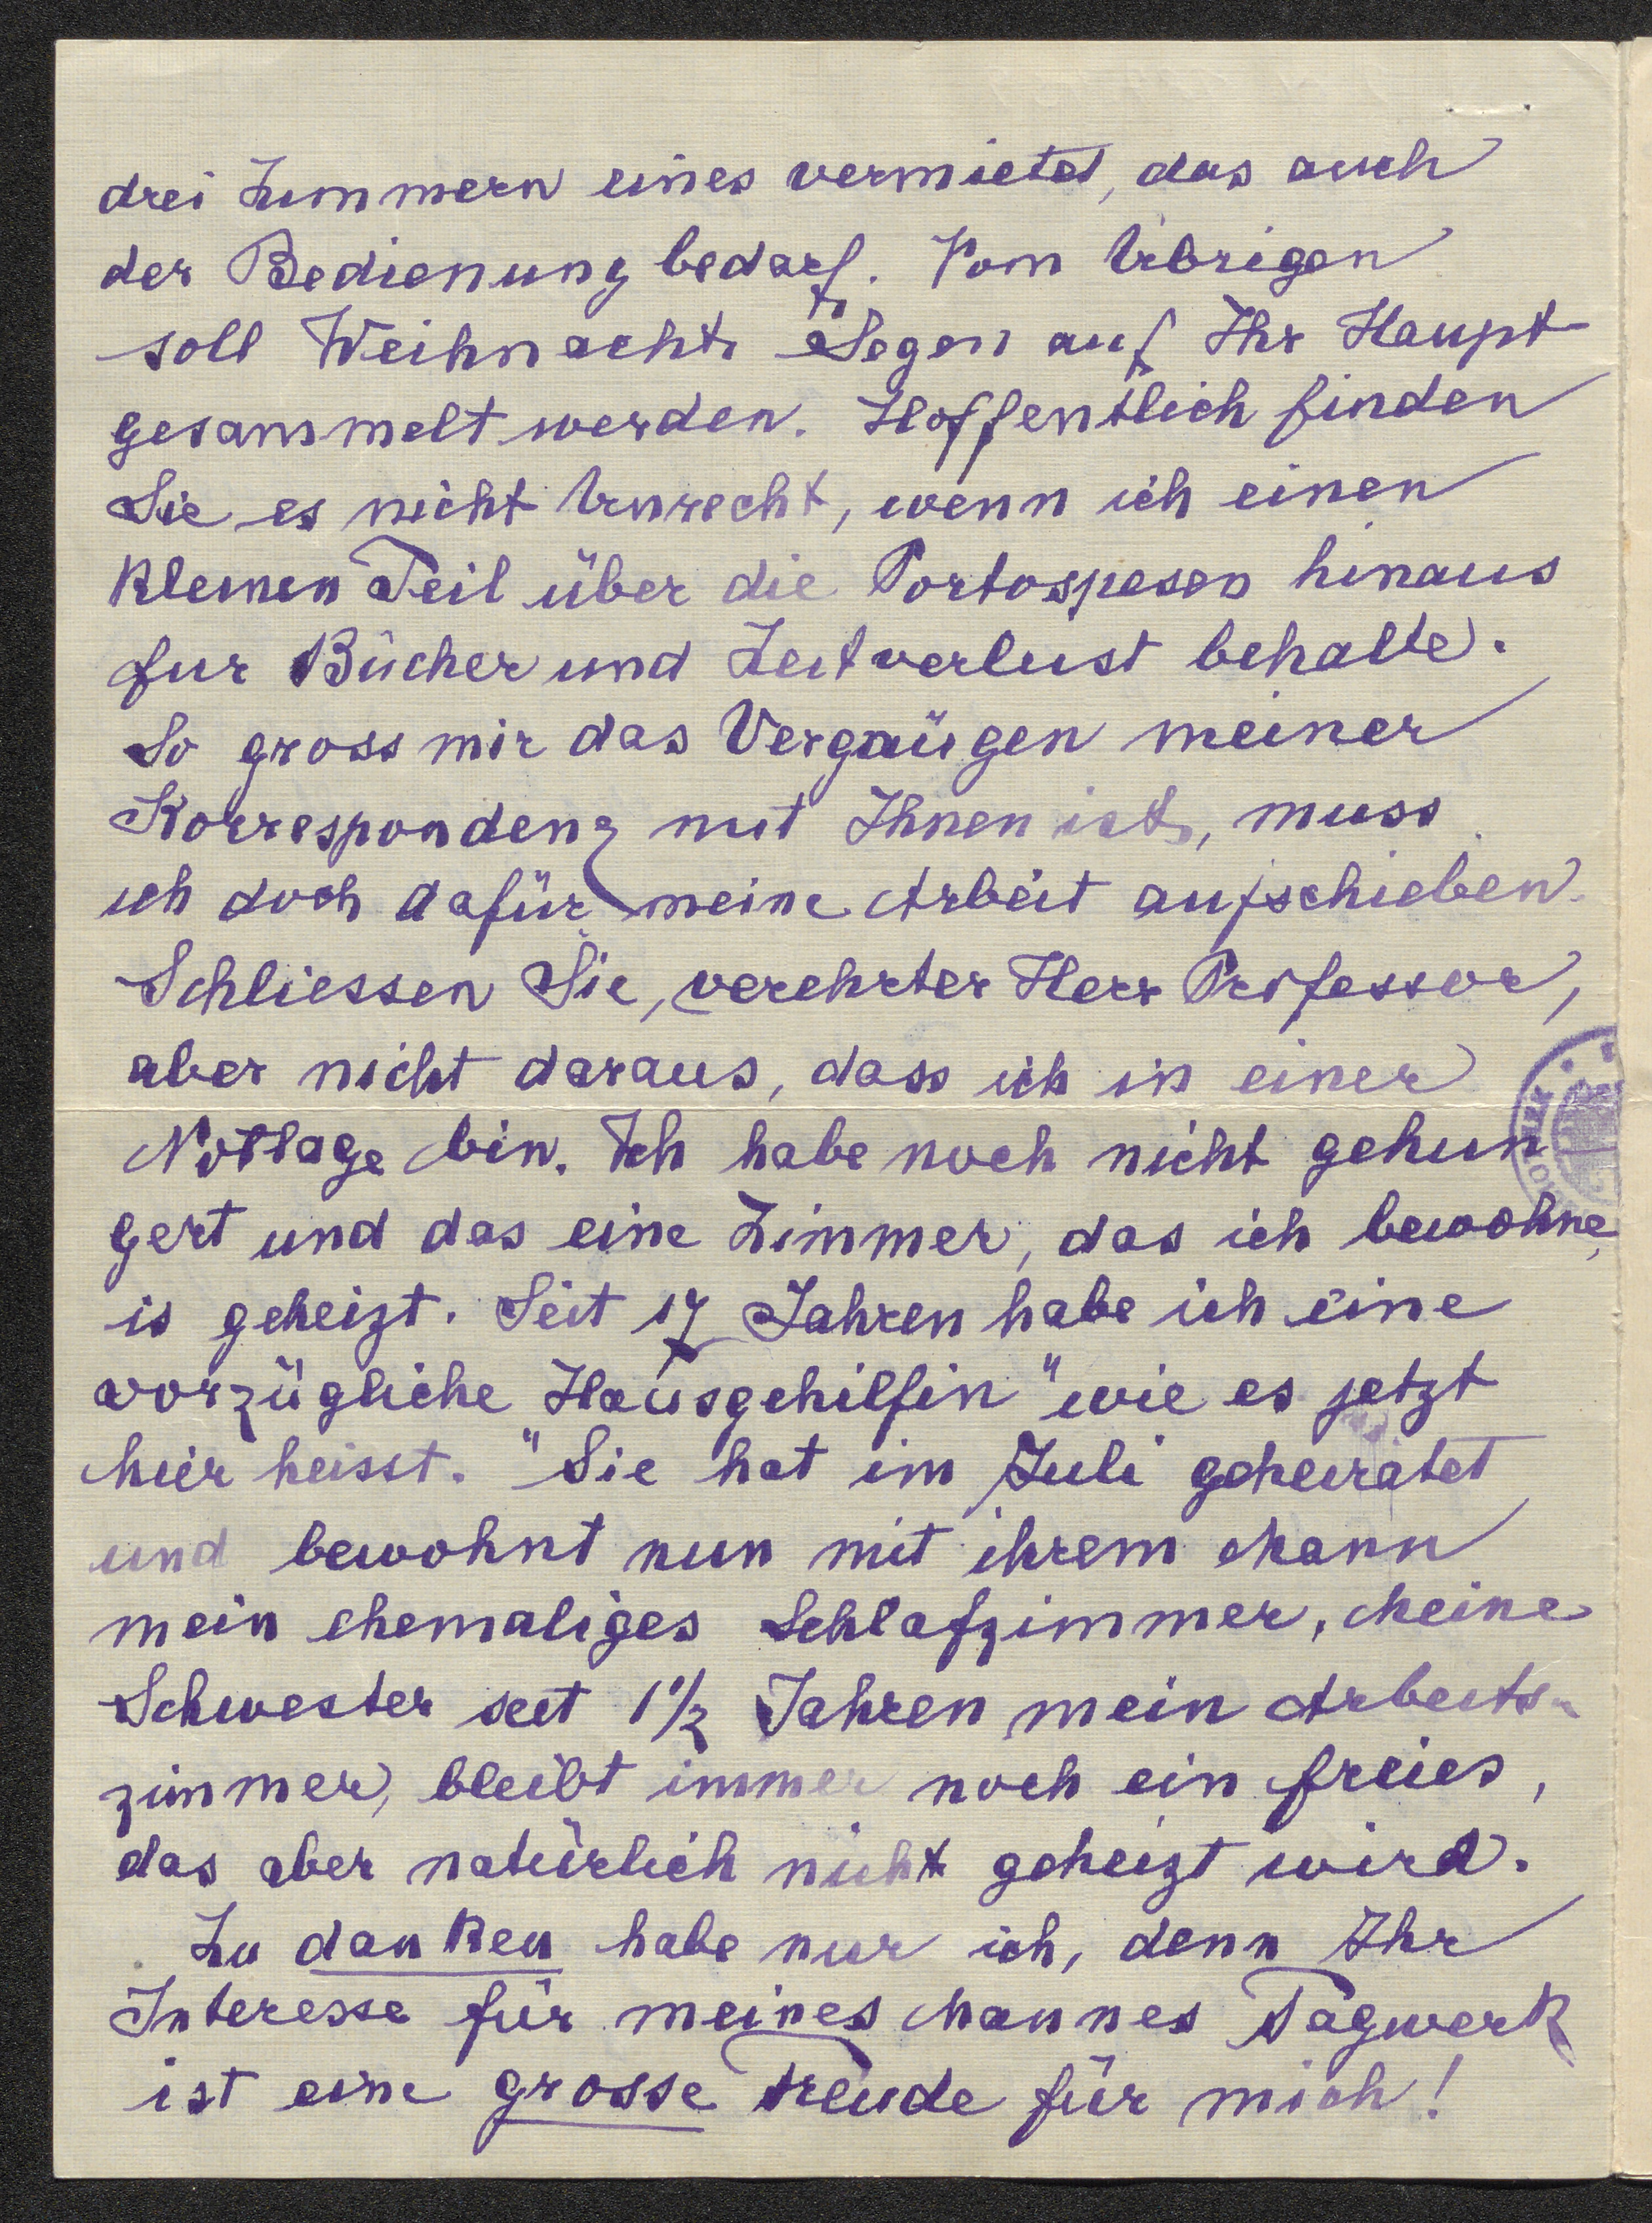 drei Zimmern eines vermietet, das auch
der Bedienung bedarf. Vom Übrigen
soll Weihnachts Segen auf Ihr Haupt
gesammelt werden. Hoffentlich finden
Sie es nicht Unrecht, wenn ich einen
kleinen Teil über die Portospesen hinaus
für Bücher und Zeitverlust behalte.
So gross mir das Vergnügen meiner
Korrespondenz mit Ihnen ist, muss
ich doch dafür meine Arbeit aufschieben.
Schliessen Sie, verehrter Herr Professor,
aber nicht daraus, dass ich in einer
Notlage bin. Ich habe noch nicht gehun
gert und das eine Zimmer, das ich bewohne,
is geheizt. Seit 17 Jahren habe ich eine
vorzügliche "Hausgehilfin" wie es jetzt
hier heisst." Sie hat im Juli geheiratet
und bewohnt nun mit ihrem Mann
mein ehemaliges Schlafzimmer, meine
Schwester seit 1½ Jahren mein Arbeits-
zimmer, bleibt immer noch ein freies,
das aber natürlich nicht geheizt wird.
Zu danken habe nur ich, denn Ihr
Interesse für meines Mannes Tagwerk
ist eine grosse Freude für mich!